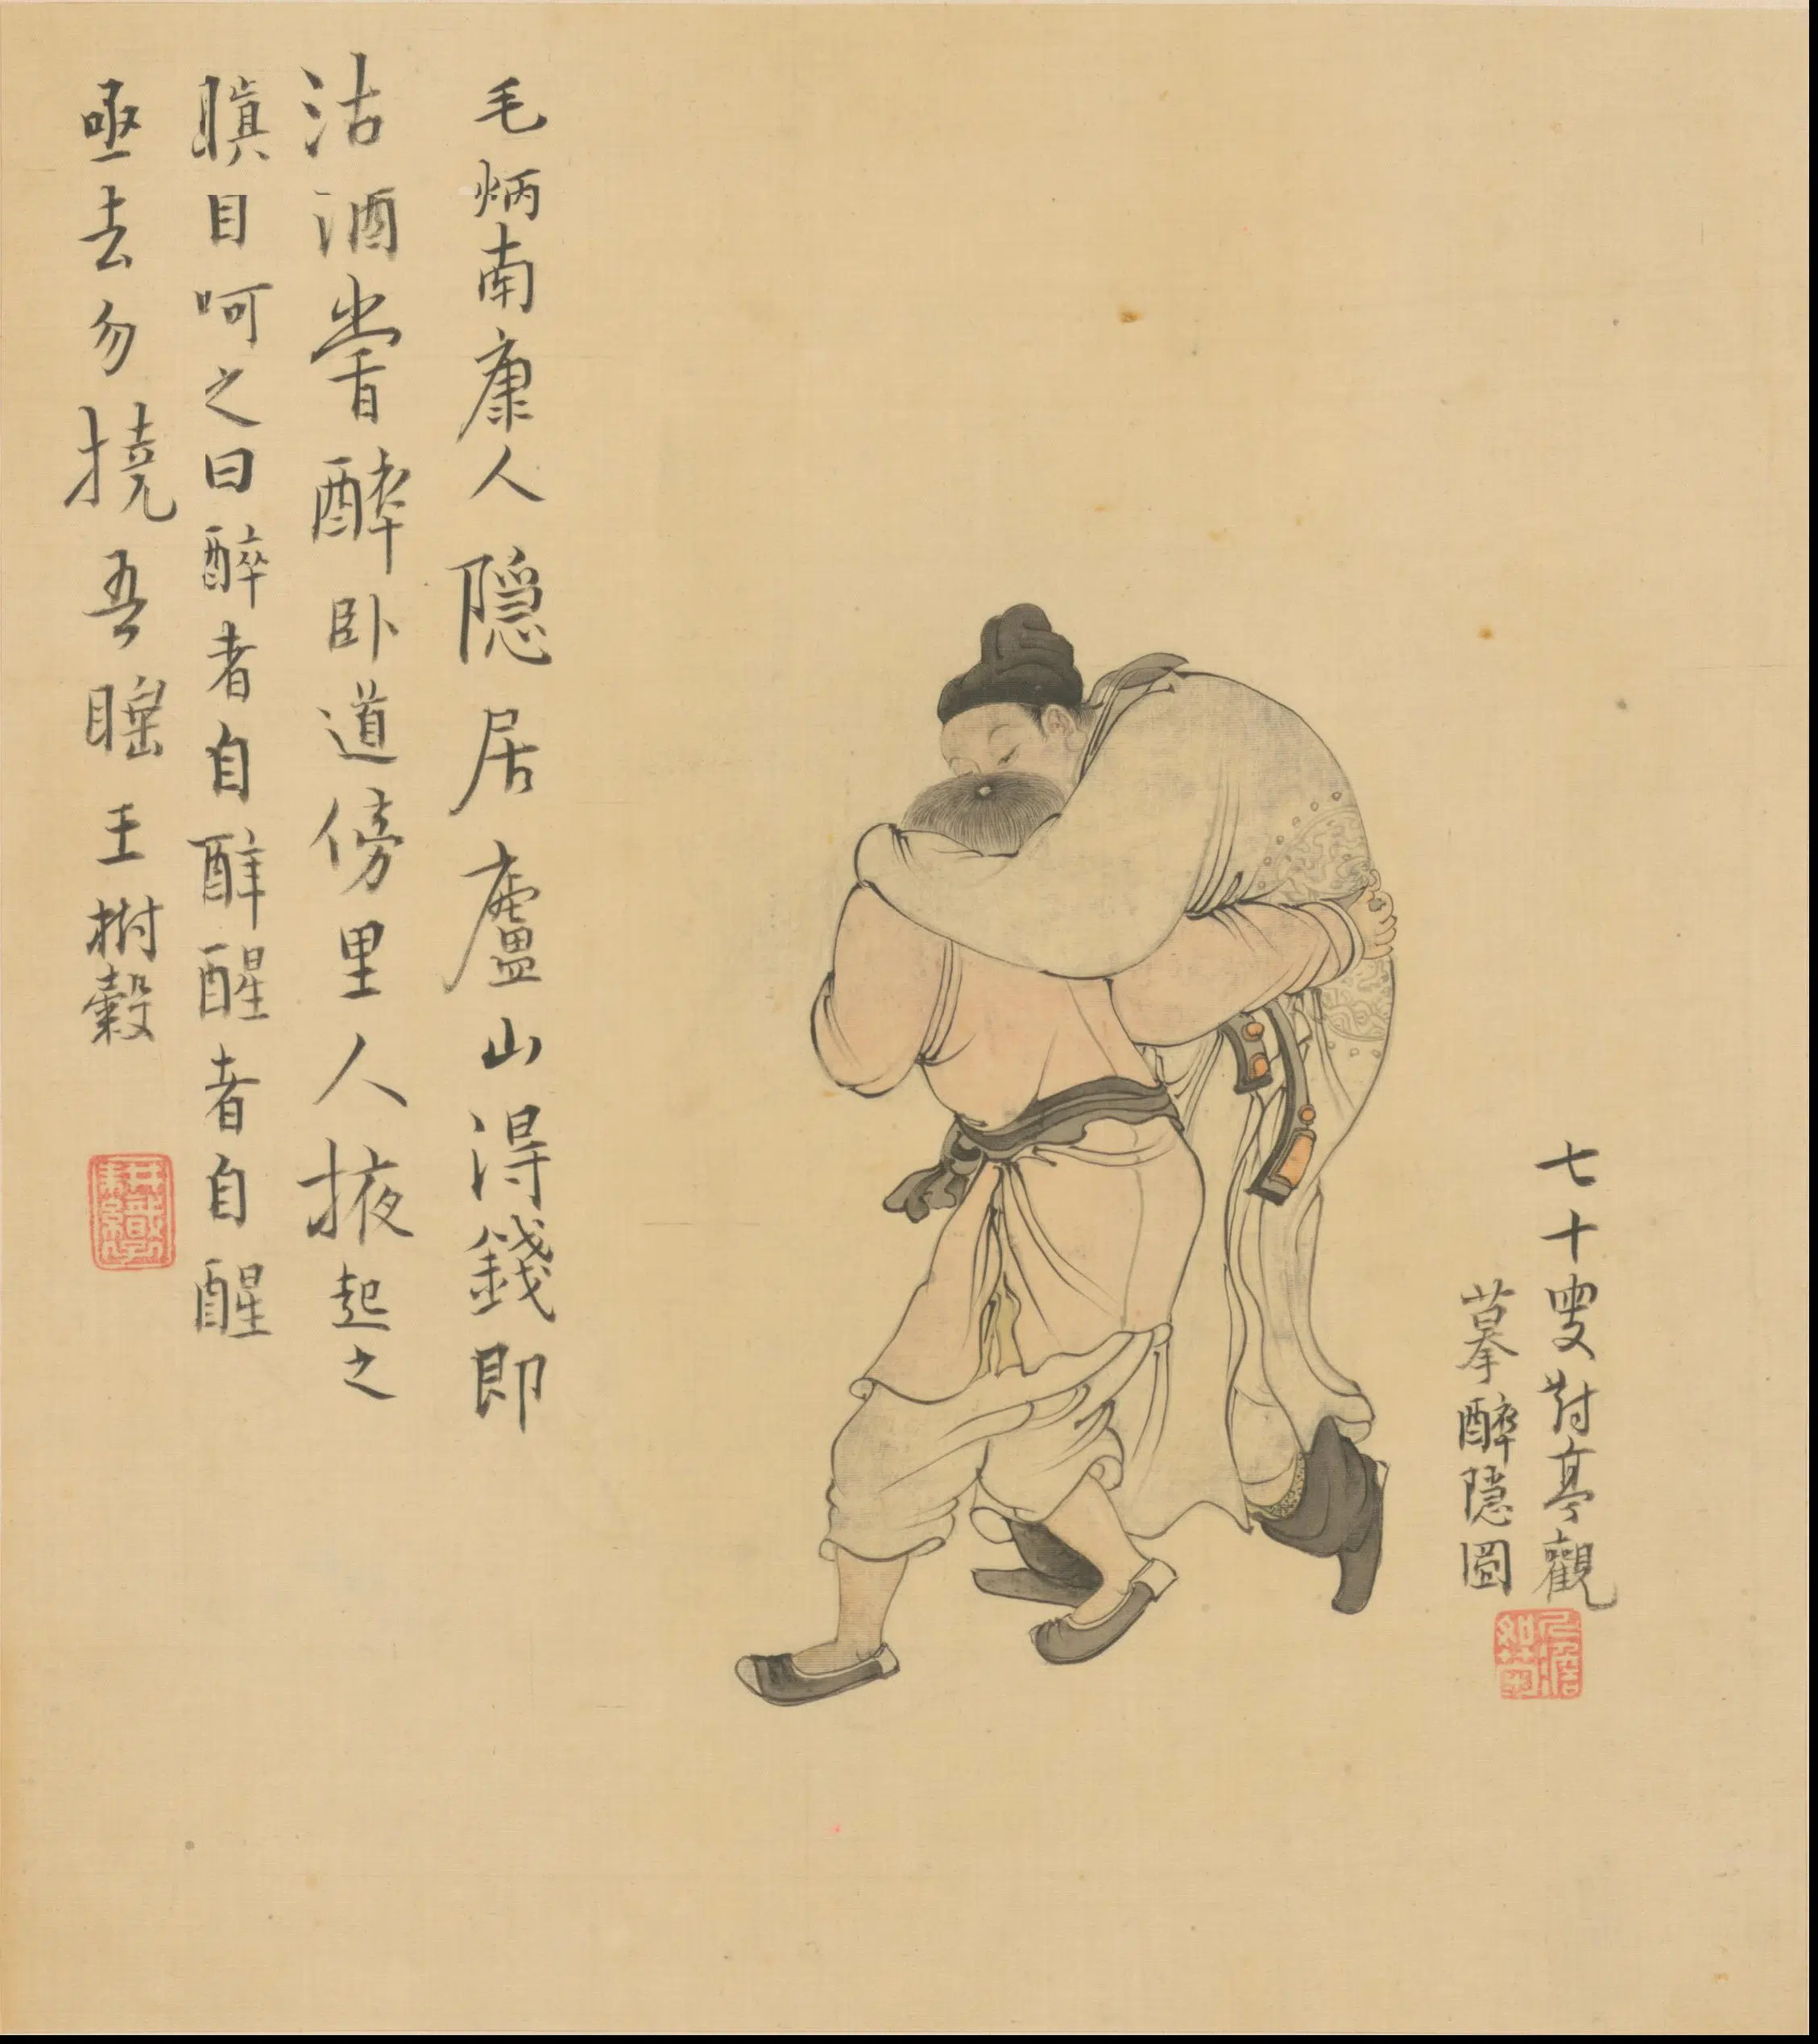 七十叟對亭觀
摹醉隱圖
毛炳南康人隱居廬山得錢即
沽酒嘗醉卧道傍里人掖起之
瞋目呵之曰醉者自醉醒者自醒
亟去勿撓吾睡王樹穀